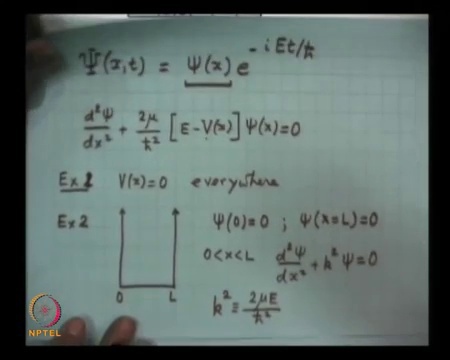 Ψ(x,t) = ψ(x) e^{-iEt/ħ}
d²ψ/dx² + 2μ/ħ² [E-V(x)] ψ(x)=0
Ex 1 V(x)=0 everywhere
Ex 2 ψ(0)=0 ; ψ(x=L)=0
0<x<L d²ψ/dx² + k²ψ=0
0 L k² ≡ 2μE/ħ²
NPTEL